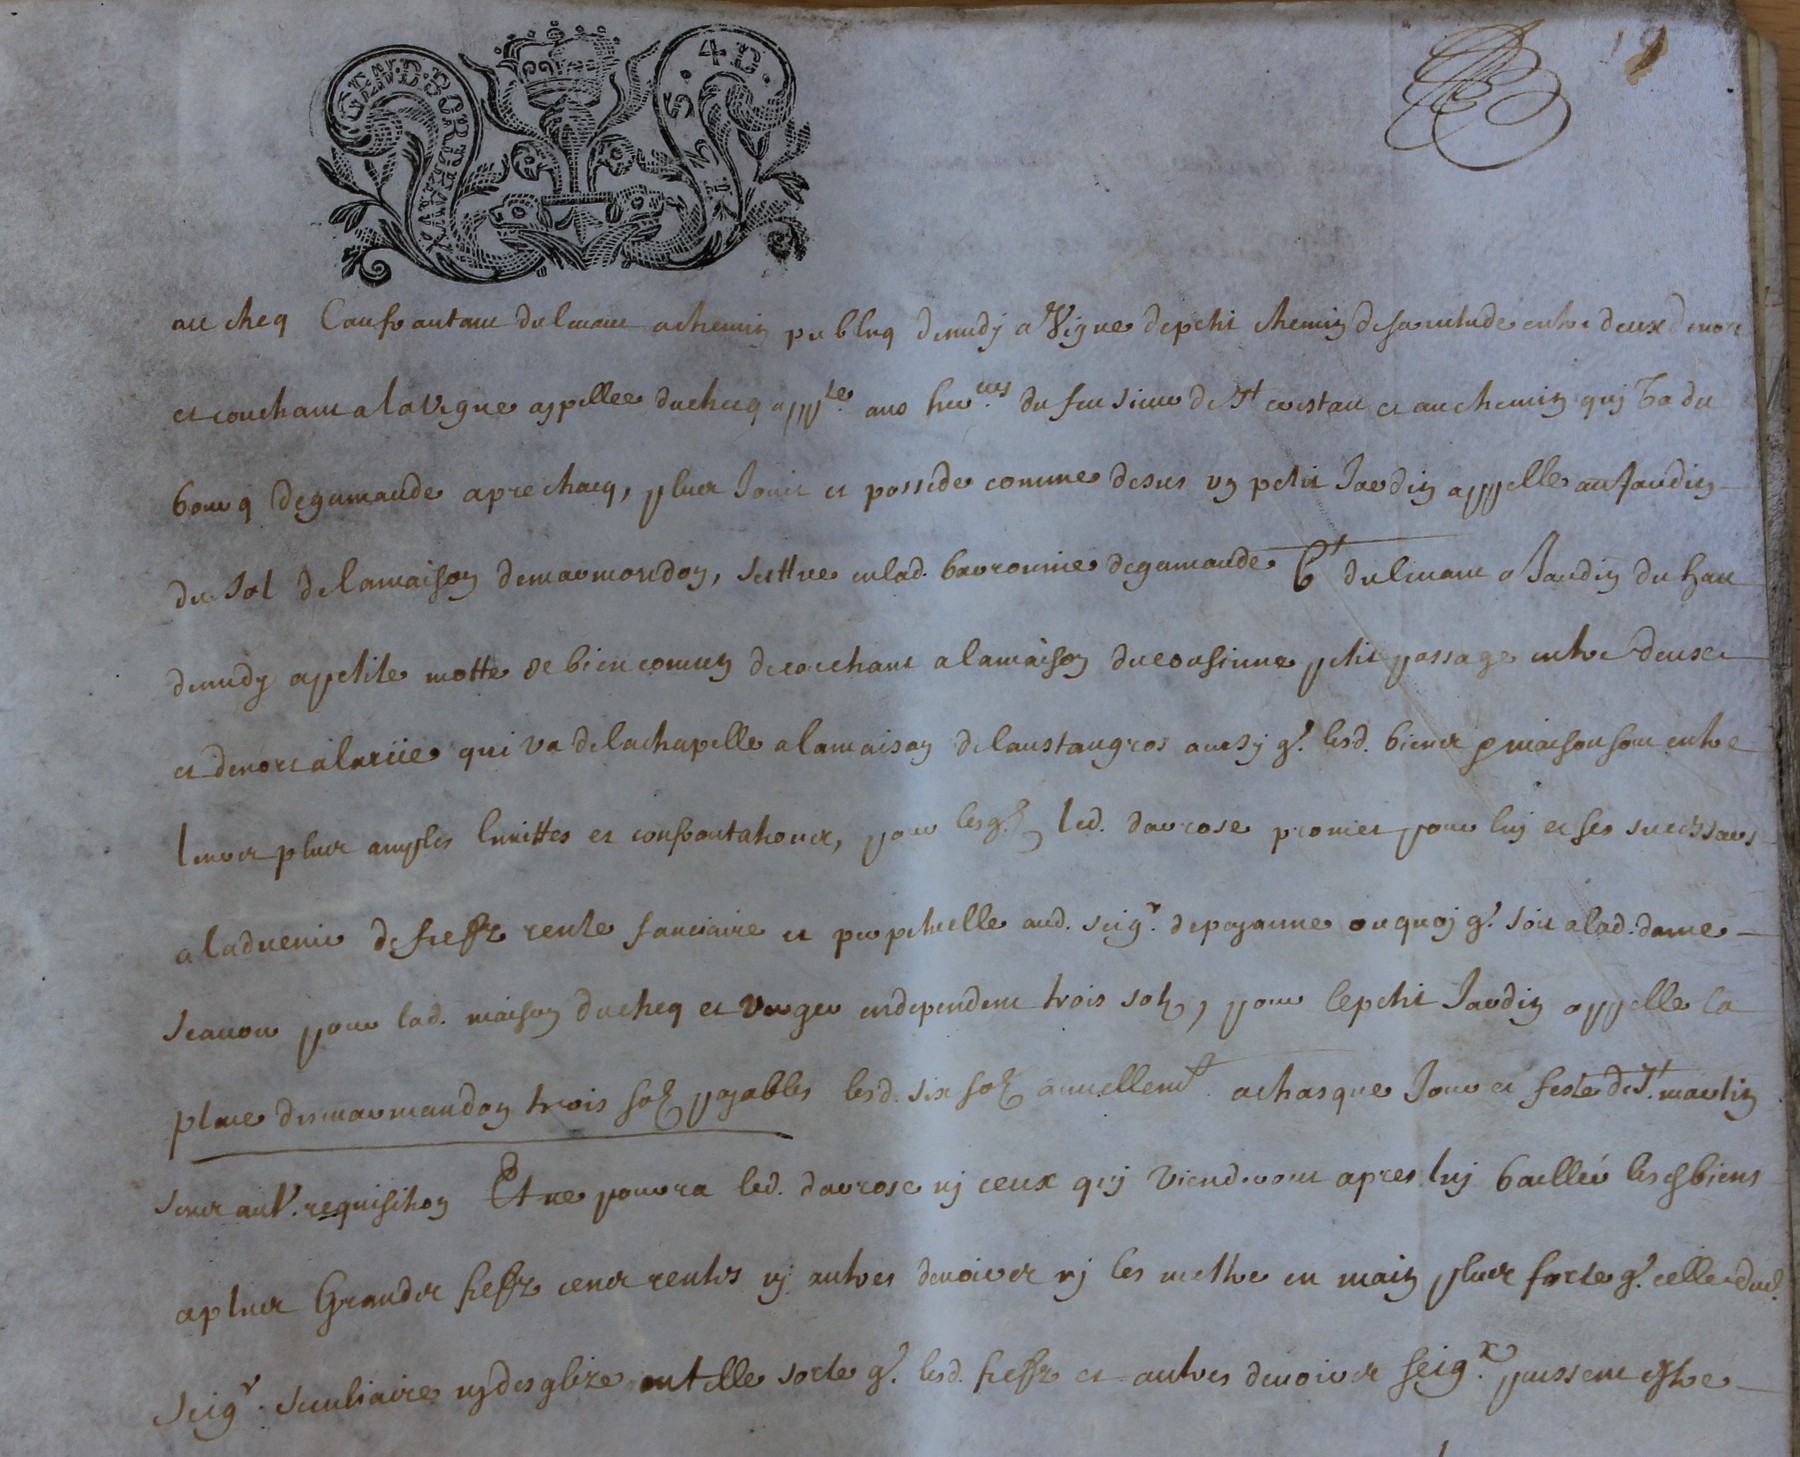 GEN·D·BORDEAUX
5·S·4·D·
au cheq Confrontant du levant a chemin publicq de midy a Vigne de petit chemin de servitude entre deux de nort
et couchant a la Vigne appellee du checq app.te aus her.ers du feu sieur de St cristau et au chemin quj Va du
bourq de gamarde a prechacq, plus Jouit et possede comme desus un petit Jardin appelle au Jardin
du sol de la maison de marmondon, scittue en lad. barronnie de gamarde Ct du levant a Jardin du hau
de midy a petite motte de bien comun de couchant a la maison du cousinne petit passage entre deuse
et de nort a la rüe qui va de la chapelle a la maison de laustaugros ausy q. lesd. biens & maison sont entre
leurs plus amples limittes et confrontations, pour lesq.ls led. darrose promet pour luj et ses sucessurs
a l advenir de fieffz rente fonciaire et perpetuelle aud. seig.r de poyanne ou quoj q. soit a lad. dame
scavoir pour lad. maison du cheq et verger en dependent trois solz, pour le petit Jardin appelle la
place de marmandon trois solz payables lesd. six solz annuellemt. a chasque Jour et feste de St. martin
sans aut. requisition Et ne pourra led. darrose nj ceux quj viendront apres luj bailler lesd biens
a plus Grands fieffz cens rentes nj autres devoirs nj les metre en main plus forte q. celle dud.
seig.r seculiaire nj desglize en telle sorte q. lesd. fieffz et autres devoirs seig.x puissent estre